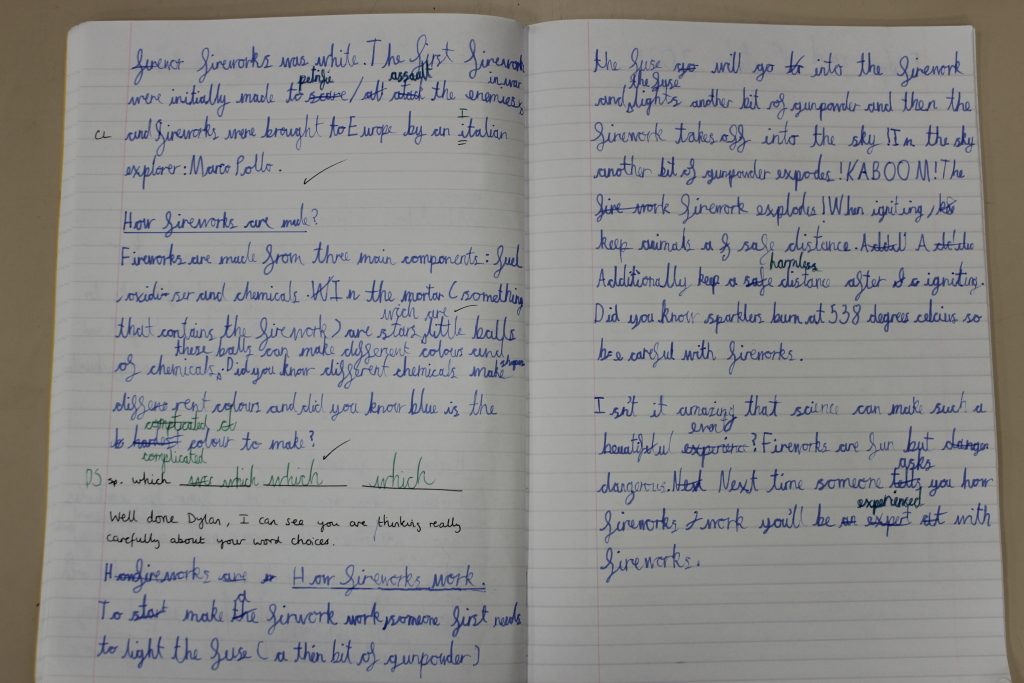 fireworks was white. The first firework
petrify assault in war
were initially made to scare / att atack the enemies,
CL and fireworks were brought to Europe by an italian I
explorer: Marco Pollo.
How fireworks are made?
Fireworks are made from three main components: fuel
, oxidi-ser and chemicals. WIn the mortar (something
wich are
that contains the firework) are stars, little balls
these balls can make different colours and
of chemicals. Did you know different chemicals make shapes
different colours and did you know blue is the
complicated
hardest colour to make?
complicated
DS sp. which which which which
Well done Dylan, I can see you are thinking really
carefully about your word choices.
How fireworks are How fireworks work.
To start make the firwork work, someone first needs
to light the fuse (a thin bit of gunpowder)
the fuse go will go to into the firework
the fuse
and lights another bit of gunpowder and then the
firework takes off into the sky! In the sky
another bit of gunpowder expodes! KABOOM! The
fire work firework explodes! When igniting,
keep animals a safe distance. A
harmless
Additionally keep a safe distance after igniting.
Did you know sparklers burn at 538 degrees celcius so
be careful with fireworks.
Isn't it amazing that science can make such a
beautiful experience? Fireworks are fun but danger
asks
dangerous. Next Next time someone tells you how
experienced
fireworks work you'll be an expert at with
fireworks.